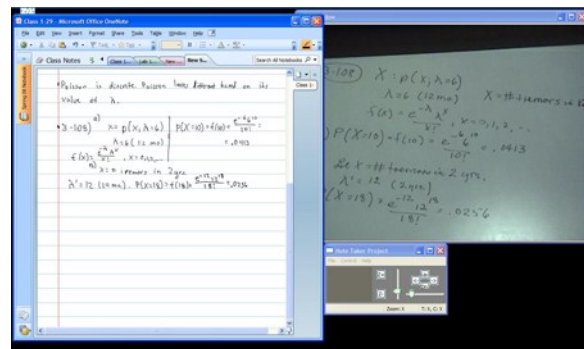 Class 1-29 - Microsoft Office OneNote
File Edit View Insert Format Share Tools Table Window Help
Class Notes
Class 1-...
Lab 1...
New ...
New S...
Search All Notebooks
Class 1-
• Poisson is discrete. Poisson looks different based on its
value of λ.
• 3-108) a) X= p(x, λ=6) P(X=10)=f(10)= e^-6 6^10 / 10! =
λ=6 (12 mo) .0413
f(x)= e^-λ λ^x / x!, x=0,1,...
λ'=12 (24 mo). P(X=18)=f(18)= e^-12 12^18 / 18! =.0256
3-108) X: p(x, λ=6)
λ=6 (12 mo) X=# tremors in
f(x) = e^-λ λ^x / x!, x=0,1,2,...
P(X=10)=f(10)= e^-6 6^10 / 10! = .0413
Let X=# tremors in 2 yrs.
λ'=12 (2 yrs)
P(X=18)= e^-12 12^18 / 18! = .0256
Note Taker Project
File Control Help
Zoom: X
T: X, C: X